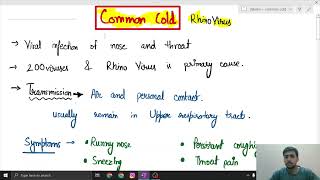 Common Cold Rhino Virus
→ Viral infection of nose and throat
→ 200 viruses & Rhino Virus is primary cause.
→ Transmission → Air and personal contact.
usually remain in Upper respiratory tract.
Symptoms → • Runny nose • Persistant coughing
• Sneezing • Throat pain